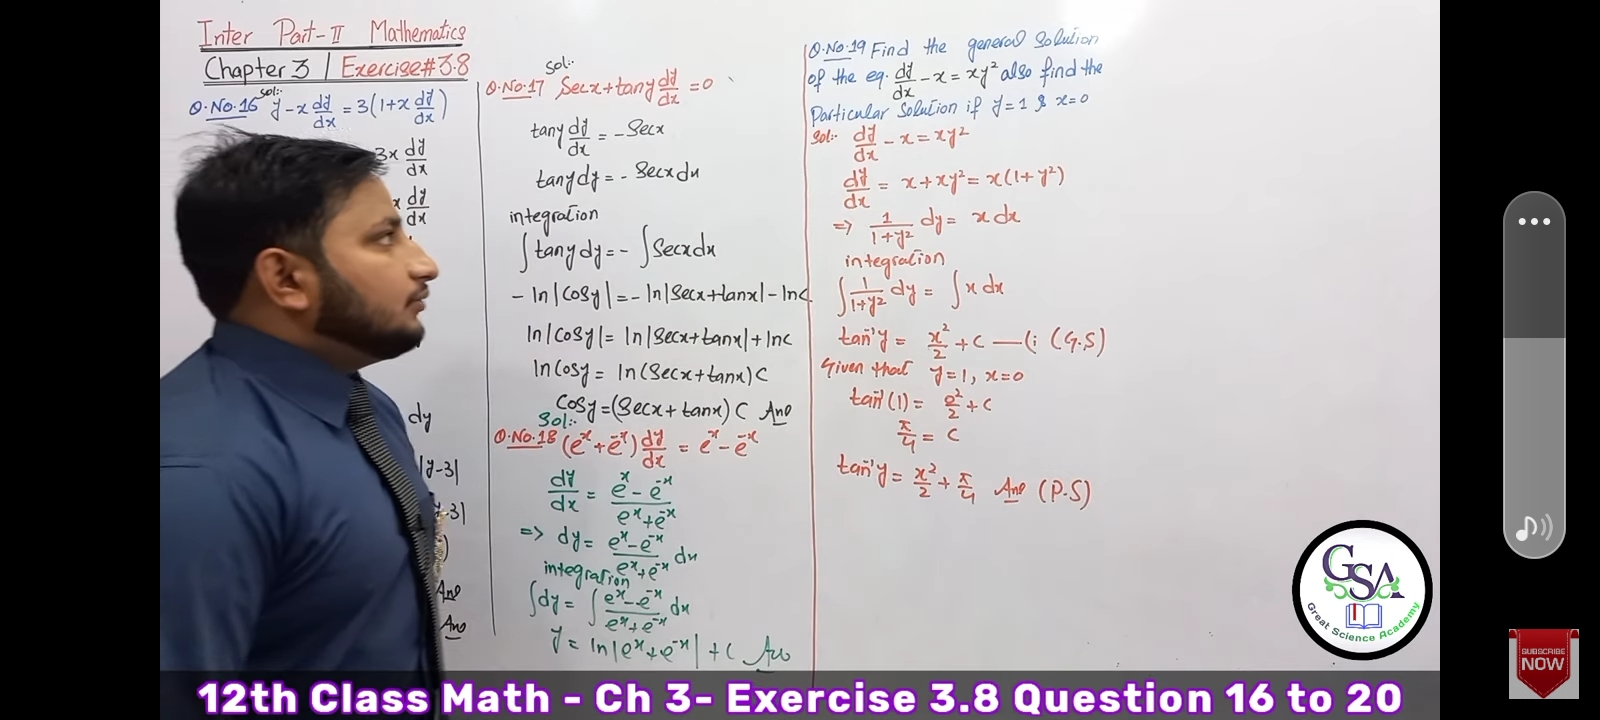 Inter Part-II Mathematics
Chapter 3 | Exercise#3.8
Q.No.16 Sol:- y-x dy/dx = 3(1+x dy/dx)
3x dy/dx
x dy/dx
dy
|y-3|
-3|
)
Ans
Ans
Sol:-
Q.No.17 Secx+tany dy/dx = 0
tany dy/dx = -Secx
tany dy = - Secx dx
integration
∫tany dy = - ∫Secx dx
-ln|Cosy| = -ln|Secx+tanx| - lnc
ln|Cosy| = ln|Secx+tanx| + lnc
ln Cosy = ln(Secx+tanx)C
Cosy = (Secx+tanx)C Ans
Sol:-
Q.No.18 (eˣ+e⁻ˣ) dy/dx = eˣ-e⁻ˣ
dy/dx = (eˣ-e⁻ˣ)/(eˣ+e⁻ˣ)
=> dy = (eˣ-e⁻ˣ)/(eˣ+e⁻ˣ) dx
integration
∫dy = ∫(eˣ-e⁻ˣ)/(eˣ+e⁻ˣ) dx
y = ln|eˣ+e⁻ˣ| + C Ans
Q.No.19 Find the general solution
of the eq. dy/dx - x = xy² also find the
Particular Solution if y=1 & x=0
Sol:- dy/dx - x = xy²
dy/dx = x+xy² = x(1+y²)
=> 1/(1+y²) dy = x dx
integration
∫1/(1+y²) dy = ∫x dx
tan⁻¹y = x²/2 + C —(i (G.S)
Given that y=1, x=0
tan⁻¹(1) = 0²/2 + C
π/4 = C
tan⁻¹y = x²/2 + π/4 Ans (P.S)
GSA
Great Science Academy
SUBSCRIBE
NOW
12th Class Math - Ch 3- Exercise 3.8 Question 16 to 20